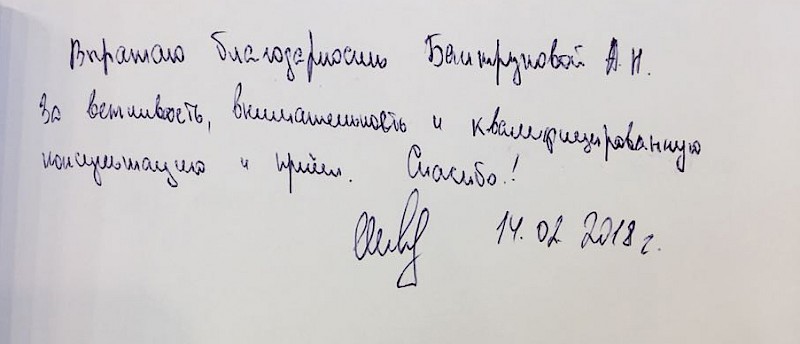 Выражаю благодарность Бектруновой А.Н.
За вежливость, внимательность и квалифицированную
консультацию и приём. Спасибо!
14.02 2018 г.